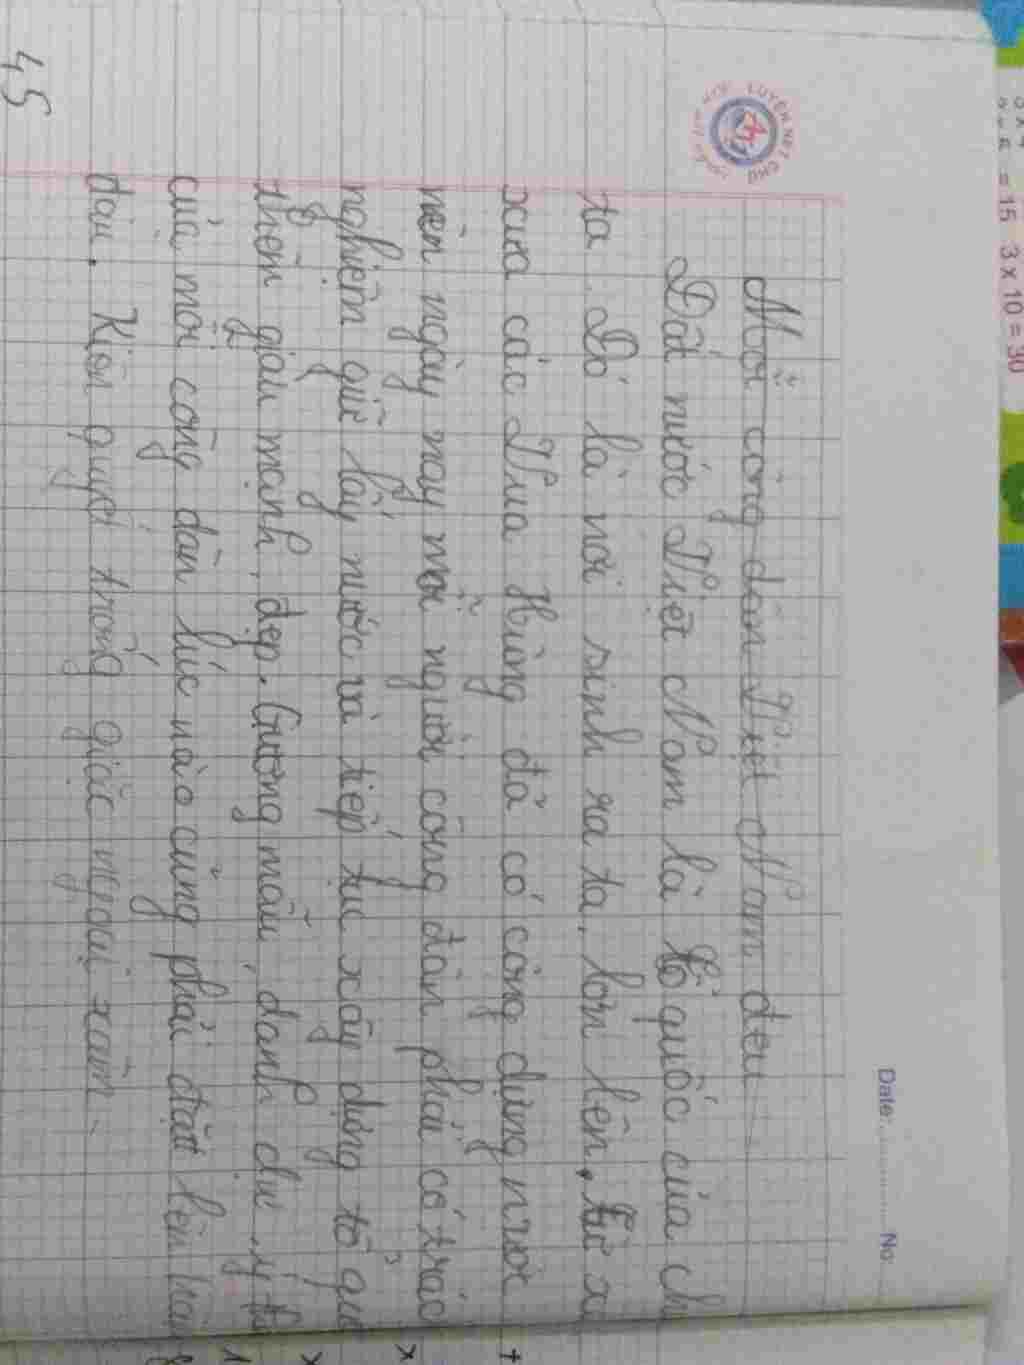 3 x 5 = 15 3 x 10 = 30
Date: No
LUYỆN NÉT CHỮ
Mỗi công dân Việt Nam đeu
Đất nước Việt Nam là tổ quốc của ch
ta. Đó là nơi sinh ra ta, lớn lên, từ xa
xưa các Vua Hùng đả có công dựng nước
nên ngày nay mỗi người công đân phải có trác
nghiệm giữ lấy nước và tiếp tục xây dựng tổ quố
thêm giàu mạnh, đẹp. Gương mẫu, danh dự, ý th
của mội công dân lúc nào củng phải đặt lên hàn
đầu. Kiên quyết trống giặc ngoại xâm.
45